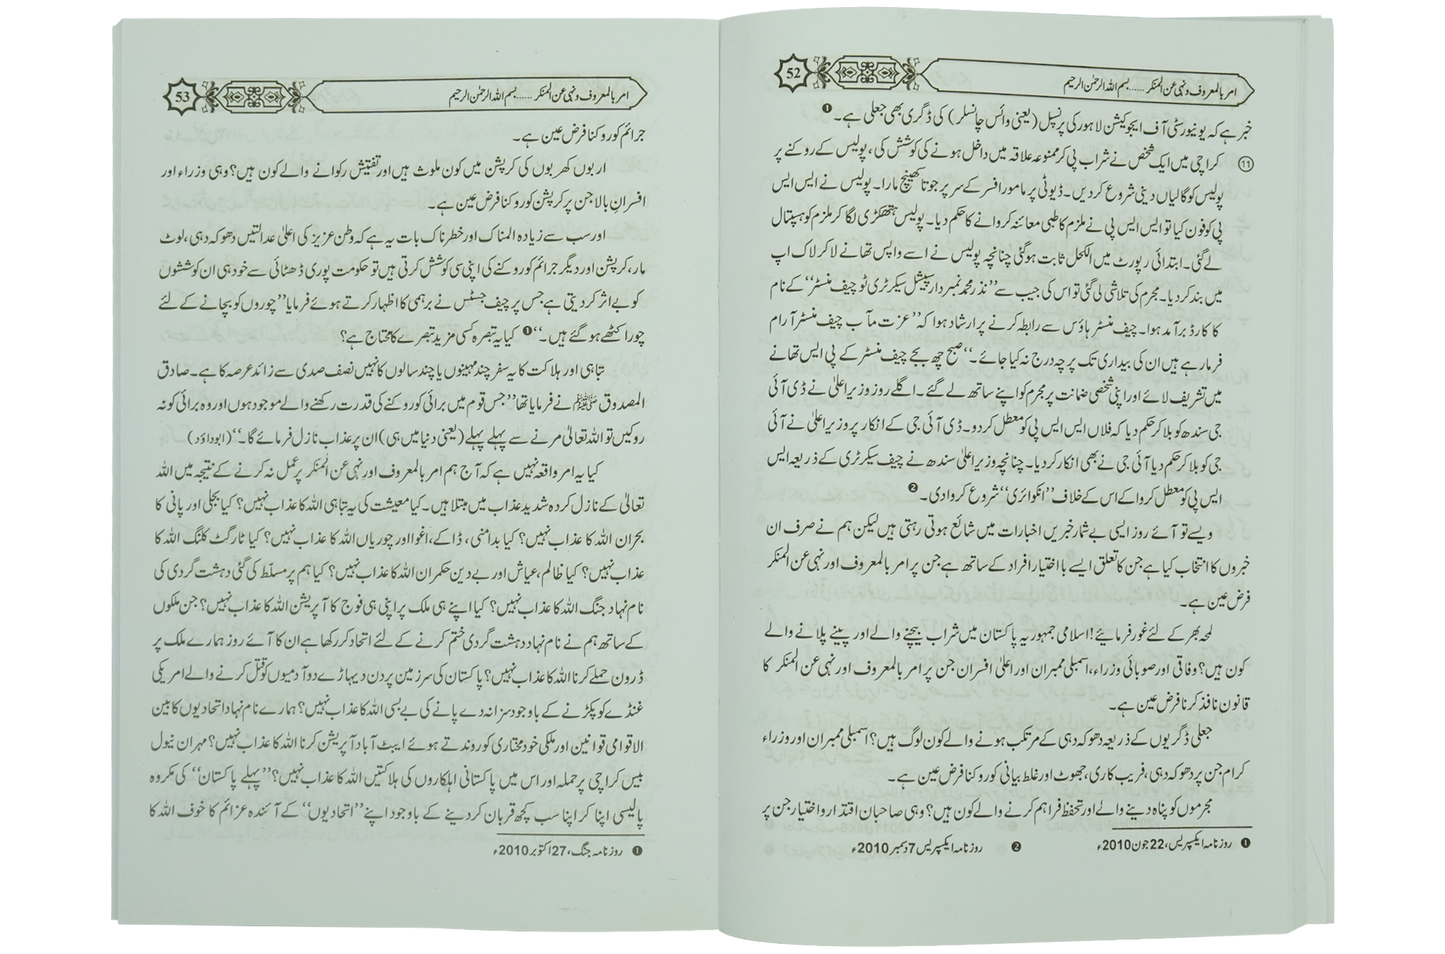 امر بالمعروف و نہی عن المنکر ...... بسم اللہ الرحمٰن الرحیم
52
خبر ہے کہ یونیورسٹی آف ایجوکیشن لاہور کی پرنسپل (یعنی وائس چانسلر) کی ڈگری بھی جعلی ہے۔ ❶
⑪ کراچی میں ایک شخص نے شراب پی کر ممنوعہ علاقہ میں داخل ہونے کی کوشش کی، پولیس کے روکنے پر
پولیس کو گالیاں دینی شروع کردیں۔ ڈیوٹی پر مامور افسر کے سر پر جوتا کھینچ مارا۔ پولیس نے ایس ایس
پی کو فون کیا تو ایس ایس پی نے ملزم کا طبی معائنہ کروانے کا حکم دیا۔ پولیس ہتھکڑی لگا کر ملزم کو ہسپتال
لے گئی۔ ابتدائی رپورٹ میں الکحل ثابت ہوگئی چنانچہ پولیس نے اسے واپس تھانے لا کر لاک اپ
میں بند کردیا۔ مجرم کی تلاشی لی گئی تو اس کی جیب سے ’’نذر محمد نمبردار سپیشل سیکرٹری ٹو چیف منسٹر‘‘ کے نام
کا کارڈ برآمد ہوا۔ چیف منسٹر ہاؤس سے رابطہ کرنے پر ارشاد ہوا کہ ’’عزت مآب چیف منسٹر آرام
فرما رہے ہیں ان کی بیداری تک پرچہ درج نہ کیا جائے۔‘‘ صبح چھ بجے چیف منسٹر کے پی ایس تھانے
میں تشریف لائے اور اپنی شخصی ضمانت پر مجرم کو اپنے ساتھ لے گئے۔ اگلے روز وزیر اعلیٰ نے ڈی آئی
جی سندھ کو بلا کر حکم دیا کہ فلاں ایس ایس پی کو معطل کردو۔ ڈی آئی جی کے انکار پر وزیر اعلیٰ نے آئی
جی کو بلا کر حکم دیا آئی جی نے بھی انکار کردیا۔ چنانچہ وزیر اعلیٰ سندھ نے چیف سیکرٹری کے ذریعہ ایس
ایس پی کو معطل کروا کے اس کے خلاف ’’انکوائری‘‘ شروع کروا دی۔ ❷
ویسے تو آئے روز ایسی بے شمار خبریں اخبارات میں شائع ہوتی رہتی ہیں لیکن ہم نے صرف ان
خبروں کا انتخاب کیا ہے جن کا تعلق ایسے با اختیار افراد کے ساتھ ہے جن پر امر بالمعروف اور نہی عن المنکر
فرض عین ہے۔
لمحہ بھر کے لئے غور فرمائیے! اسلامی جمہوریہ پاکستان میں شراب بیچنے والے اور پینے پلانے والے
کون ہیں؟ وفاقی اور صوبائی وزراء، اسمبلی ممبران اور اعلیٰ افسران جن پر امر بالمعروف اور نہی عن المنکر کا
قانون نافذ کرنا فرض عین ہے۔
جعلی ڈگریوں کے ذریعہ دھوکہ دہی کے مرتکب ہونے والے کون لوگ ہیں؟ اسمبلی ممبران اور وزراء
کرام جن پر دھوکہ دہی، فریب کاری، جھوٹ اور غلط بیانی کو روکنا فرض عین ہے۔
مجرموں کو پناہ دینے والے اور تحفظ فراہم کرنے والے کون ہیں؟ وہی صاحبان اقتدار و اختیار جن پر
❶ روزنامہ ایکسپریس، 22 جون 2010ء ❷ روزنامہ ایکسپریس 7 دسمبر 2010ء
امر بالمعروف و نہی عن المنکر ...... بسم اللہ الرحمٰن الرحیم
53
جرائم کو روکنا فرض عین ہے۔
اربوں کھربوں کی کرپشن میں کون ملوث ہیں اور تفتیش رکوانے والے کون ہیں؟ وہی وزراء اور
افسران بالا جن پر کرپشن کو روکنا فرض عین ہے۔
اور سب سے زیادہ المناک اور خطرناک بات یہ ہے کہ وطن عزیز کی اعلیٰ عدالتیں دھوکہ دہی، لوٹ
مار، کرپشن اور دیگر جرائم کو روکنے کی اپنی سی کوشش کرتی ہیں تو حکومت پوری ڈھٹائی سے خود ہی ان کوششوں
کو بے اثر کردیتی ہے جس پر چیف جسٹس نے برہمی کا اظہار کرتے ہوئے فرمایا ’’چوروں کو بچانے کے لئے
چور اکٹھے ہوگئے ہیں۔‘‘ ❶ کیا یہ تبصرہ کسی مزید تبصرے کا محتاج ہے؟
تباہی اور ہلاکت کا یہ سفر چند مہینوں یا چند سالوں کا نہیں نصف صدی سے زائد عرصہ کا ہے۔ صادق
المصدوق ﷺ نے فرمایا تھا ’’جس قوم میں برائی کو روکنے کی قدرت رکھنے والے موجود ہوں اور وہ برائی کو نہ
روکیں تو اللہ تعالیٰ مرنے سے پہلے پہلے (یعنی دنیا میں ہی) ان پر عذاب نازل فرمائے گا۔‘‘ (ابوداؤد)
کیا یہ امر واقعہ نہیں ہے کہ آج ہم امر بالمعروف اور نہی عن المنکر پر عمل نہ کرنے کے نتیجہ میں اللہ
تعالیٰ کے نازل کردہ شدید عذاب میں مبتلا ہیں۔ کیا معیشت کی یہ تباہی اللہ کا عذاب نہیں؟ کیا بجلی اور پانی کا
بحران اللہ کا عذاب نہیں؟ کیا بدامنی، ڈاکے، اغوا اور چوریاں اللہ کا عذاب نہیں؟ کیا ٹارگٹ کلنگ اللہ کا
عذاب نہیں؟ کیا ظالم، عیاش اور بے دین حکمران اللہ کا عذاب نہیں؟ کیا ہم پر مسلط کی گئی دہشت گردی کی
نام نہاد جنگ اللہ کا عذاب نہیں؟ کیا اپنے ہی ملک پر اپنی ہی فوج کا آپریشن اللہ کا عذاب نہیں؟ جن ملکوں
کے ساتھ ہم نے نام نہاد دہشت گردی ختم کرنے کے لئے اتحاد کر رکھا ہے ان کا آئے روز ہمارے ملک پر
ڈرون حملے کرنا اللہ کا عذاب نہیں؟ پاکستان کی سرزمین پر دن دیہاڑے دو آدمیوں کو قتل کرنے والے امریکی
غنڈے کو پکڑنے کے باوجود سزا نہ دے پانے کی بے بسی اللہ کا عذاب نہیں؟ ہمارے نام نہاد اتحادیوں کا بین
الاقوامی قوانین اور ملکی خود مختاری کو روندتے ہوئے ایبٹ آباد آپریشن کرنا اللہ کا عذاب نہیں؟ مہران نیول
بیس کراچی پر حملہ اور اس میں پاکستانی اہلکاروں کی ہلاکتیں اللہ کا عذاب نہیں؟ ’’پہلے پاکستان‘‘ کی مکروہ
پالیسی اپنا کر اپنا سب کچھ قربان کردینے کے باوجود اپنے ’’اتحادیوں‘‘ کے آئندہ عزائم کا خوف اللہ کا
❶ روزنامہ جنگ، 27 اکتوبر 2010ء